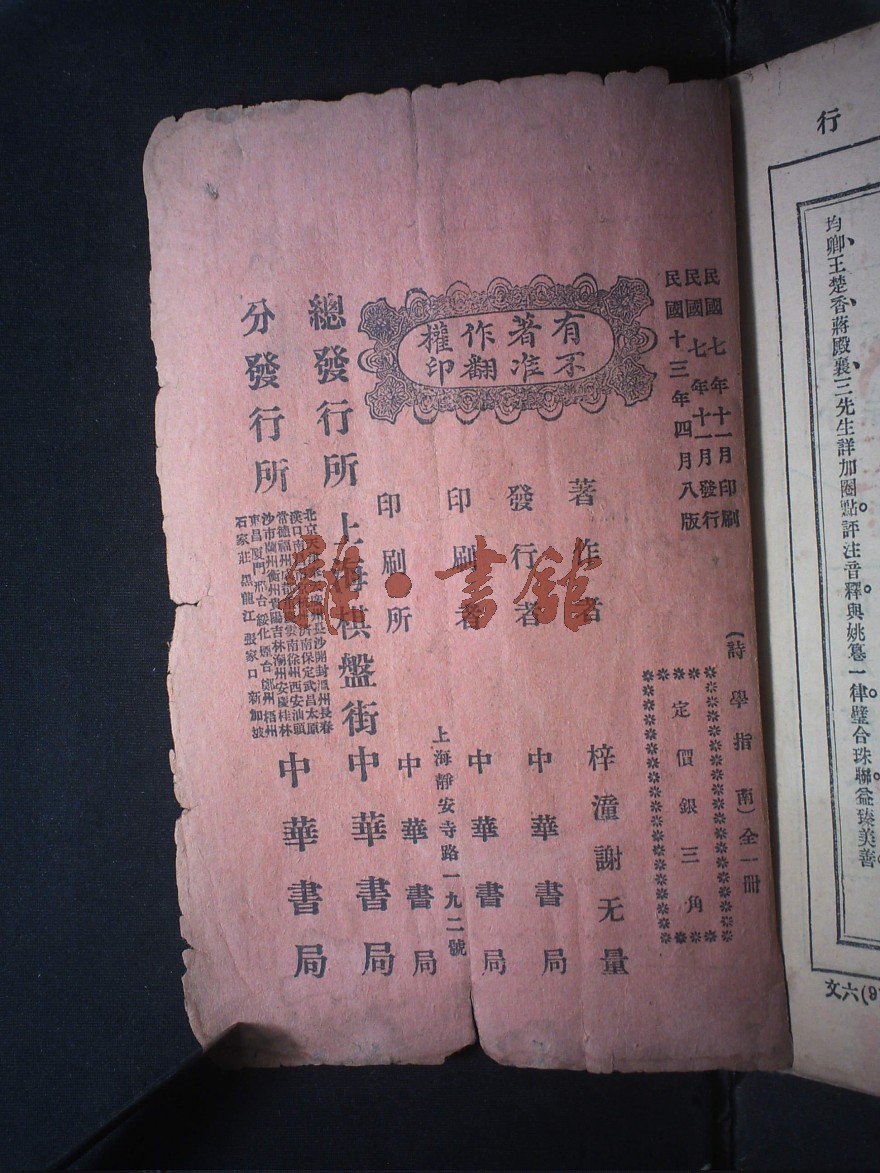 行
均卿王楚香蔣殿襄三先生詳加圈點評注音釋與姚纂一律璧合珠聯益臻美善
文六(9
民國七年十一月印刷
民國七年十一月發行
民國十三年四月八版
(詩學指南)全一冊
定價銀三角
有著作權
不准翻印
著作者 梓潼謝无量
發行者 中華書局
印刷者 中華書局
上海靜安寺路一九二號
印刷所 中華書局
總發行所 上海棋盤街 中華書局
分發行所 中華書局
長沙開封溫州長春
濟南保定武昌太原
雲南徐州西安汕頭
常德福州成都
沙市蘭州衡州貴陽吉林潮州安慶桂林
東昌廈門邢台綏化煙台鄭州梧州
石家莊黑龍江張家口新加坡
雜·書館